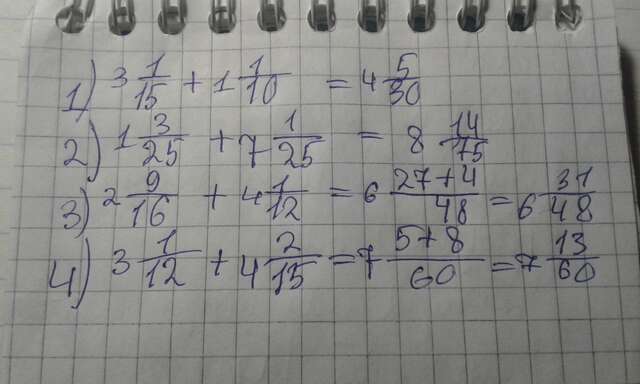 1) 3 1/15 + 1 1/10 = 4 5/30
2) 1 3/25 + 7 1/25 = 8 14/75
3) 2 9/16 + 4 1/12 = 6 27+4/48 = 6 31/48
4) 3 1/12 + 4 2/15 = 7 5+8/60 = 7 13/60